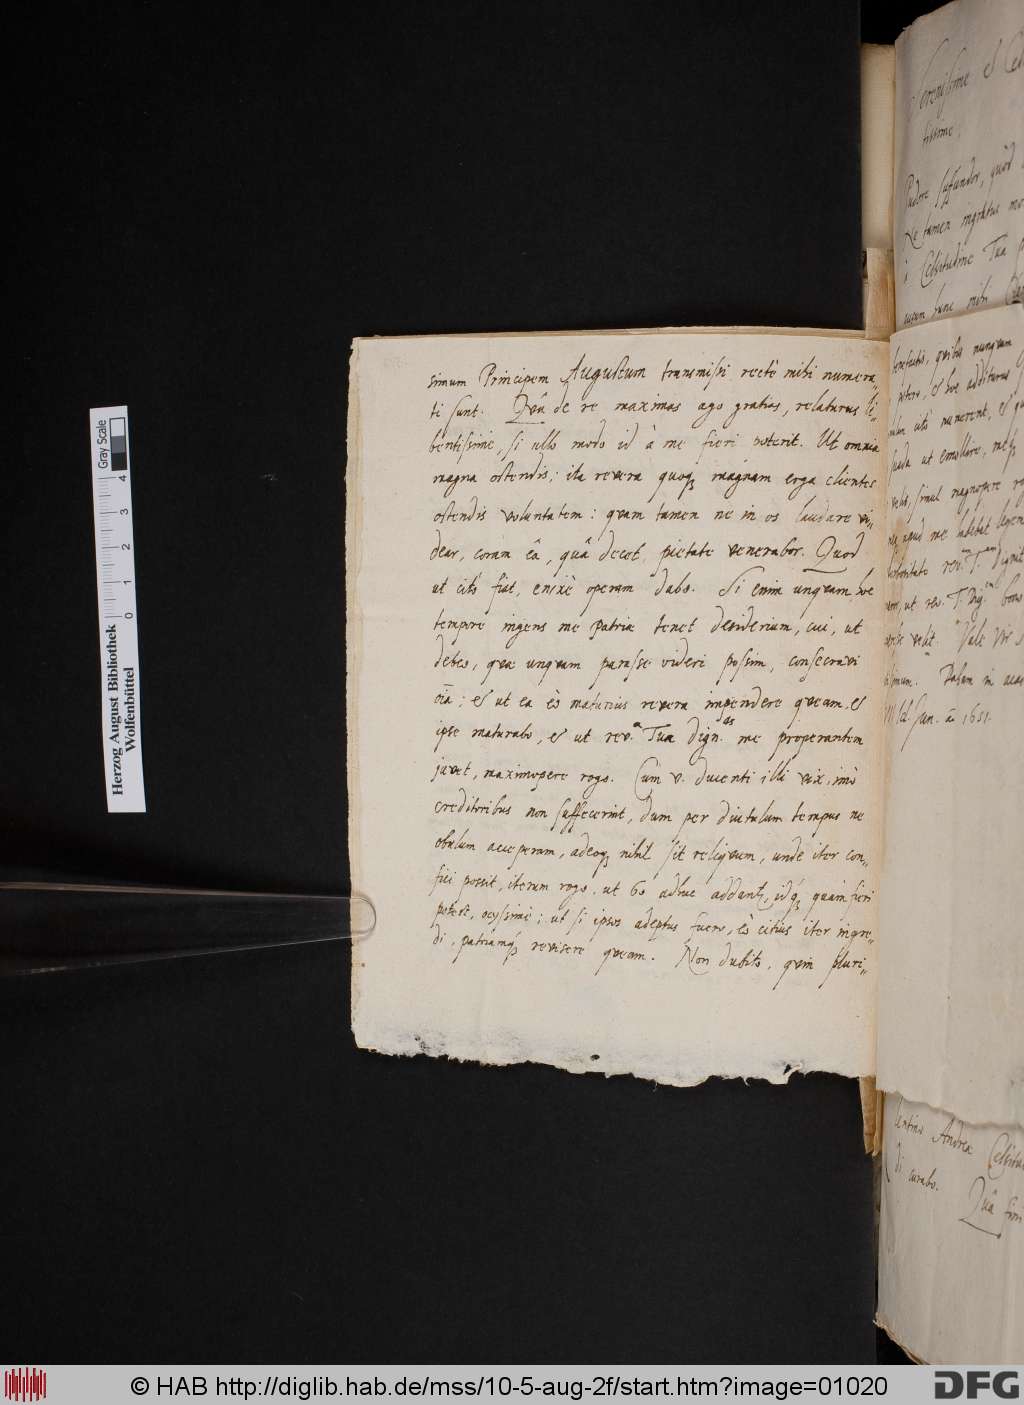 simum Principem Augustum transmissi rectè mihi numera„
ti sunt. Qvâ de re maximas ago gratias, relaturus li„
bentissimè, si ullo modo id à me fieri poterit. Ut omnia
magna ostendis; ita revera quoq; magnam erga clientes
ostendis voluntatem: qvam tamen ne in os laudare vi„
dear, coram eâ, quâ decet, pietate venerabor. Quod
ut citò fiat, enixè operam dabo. Si enim unqvam, hoc
tempore ingens me patriæ tenet desiderium, cui, ut
debeo, qvæ unqvam parasse videri possim, consecravi
oĩa; et ut ea eò maturius revera impendere qveam et
ipse maturabo, et ut rev.ᵃ Tua dign.ᵃˢ me properantem
juvet, maximopere rogo. Cùm v. ducenti illi vix, imò
creditoribus non suffecerint, dum per diutulum tempus ne
obulum acceperam, adeoq; nihil sit reliqvum, unde iter con„
fici possit, iterum rogo, ut 60 adhuc addantꝛ, idq́; quam fieri
potest, ocyssimè; ut si ipsos adeptus fuero, eò citius iter ingre„
di, patriamq́; revisere qveam. Non dubito, qvin pluri„
Serenissime et Cel
tissime,
Pudore suffundor, quòd
Ne tamen ingratus
à Celsitudine Tua
hunc mihi
benefactis, qvibus nunqvam
et hoc additurus
citò numerent, et
ut emollire,
velis, simul magnopere
apud me habitat
rev.ᵃᵐ T.ᵃᵐ Dignit
ut rev. T. Dig.ᵉᵐ
velit. Vale Vir
Dabam in
Jun. aõ 1651.
Andreæ Celsitu
di curabo. Quâ fieri
Herzog August Bibliothek
Wolfenbüttel
Gray Scale
0 1 2 3 4
© HAB http://diglib.hab.de/mss/10-5-aug-2f/start.htm?image=01020
DFG